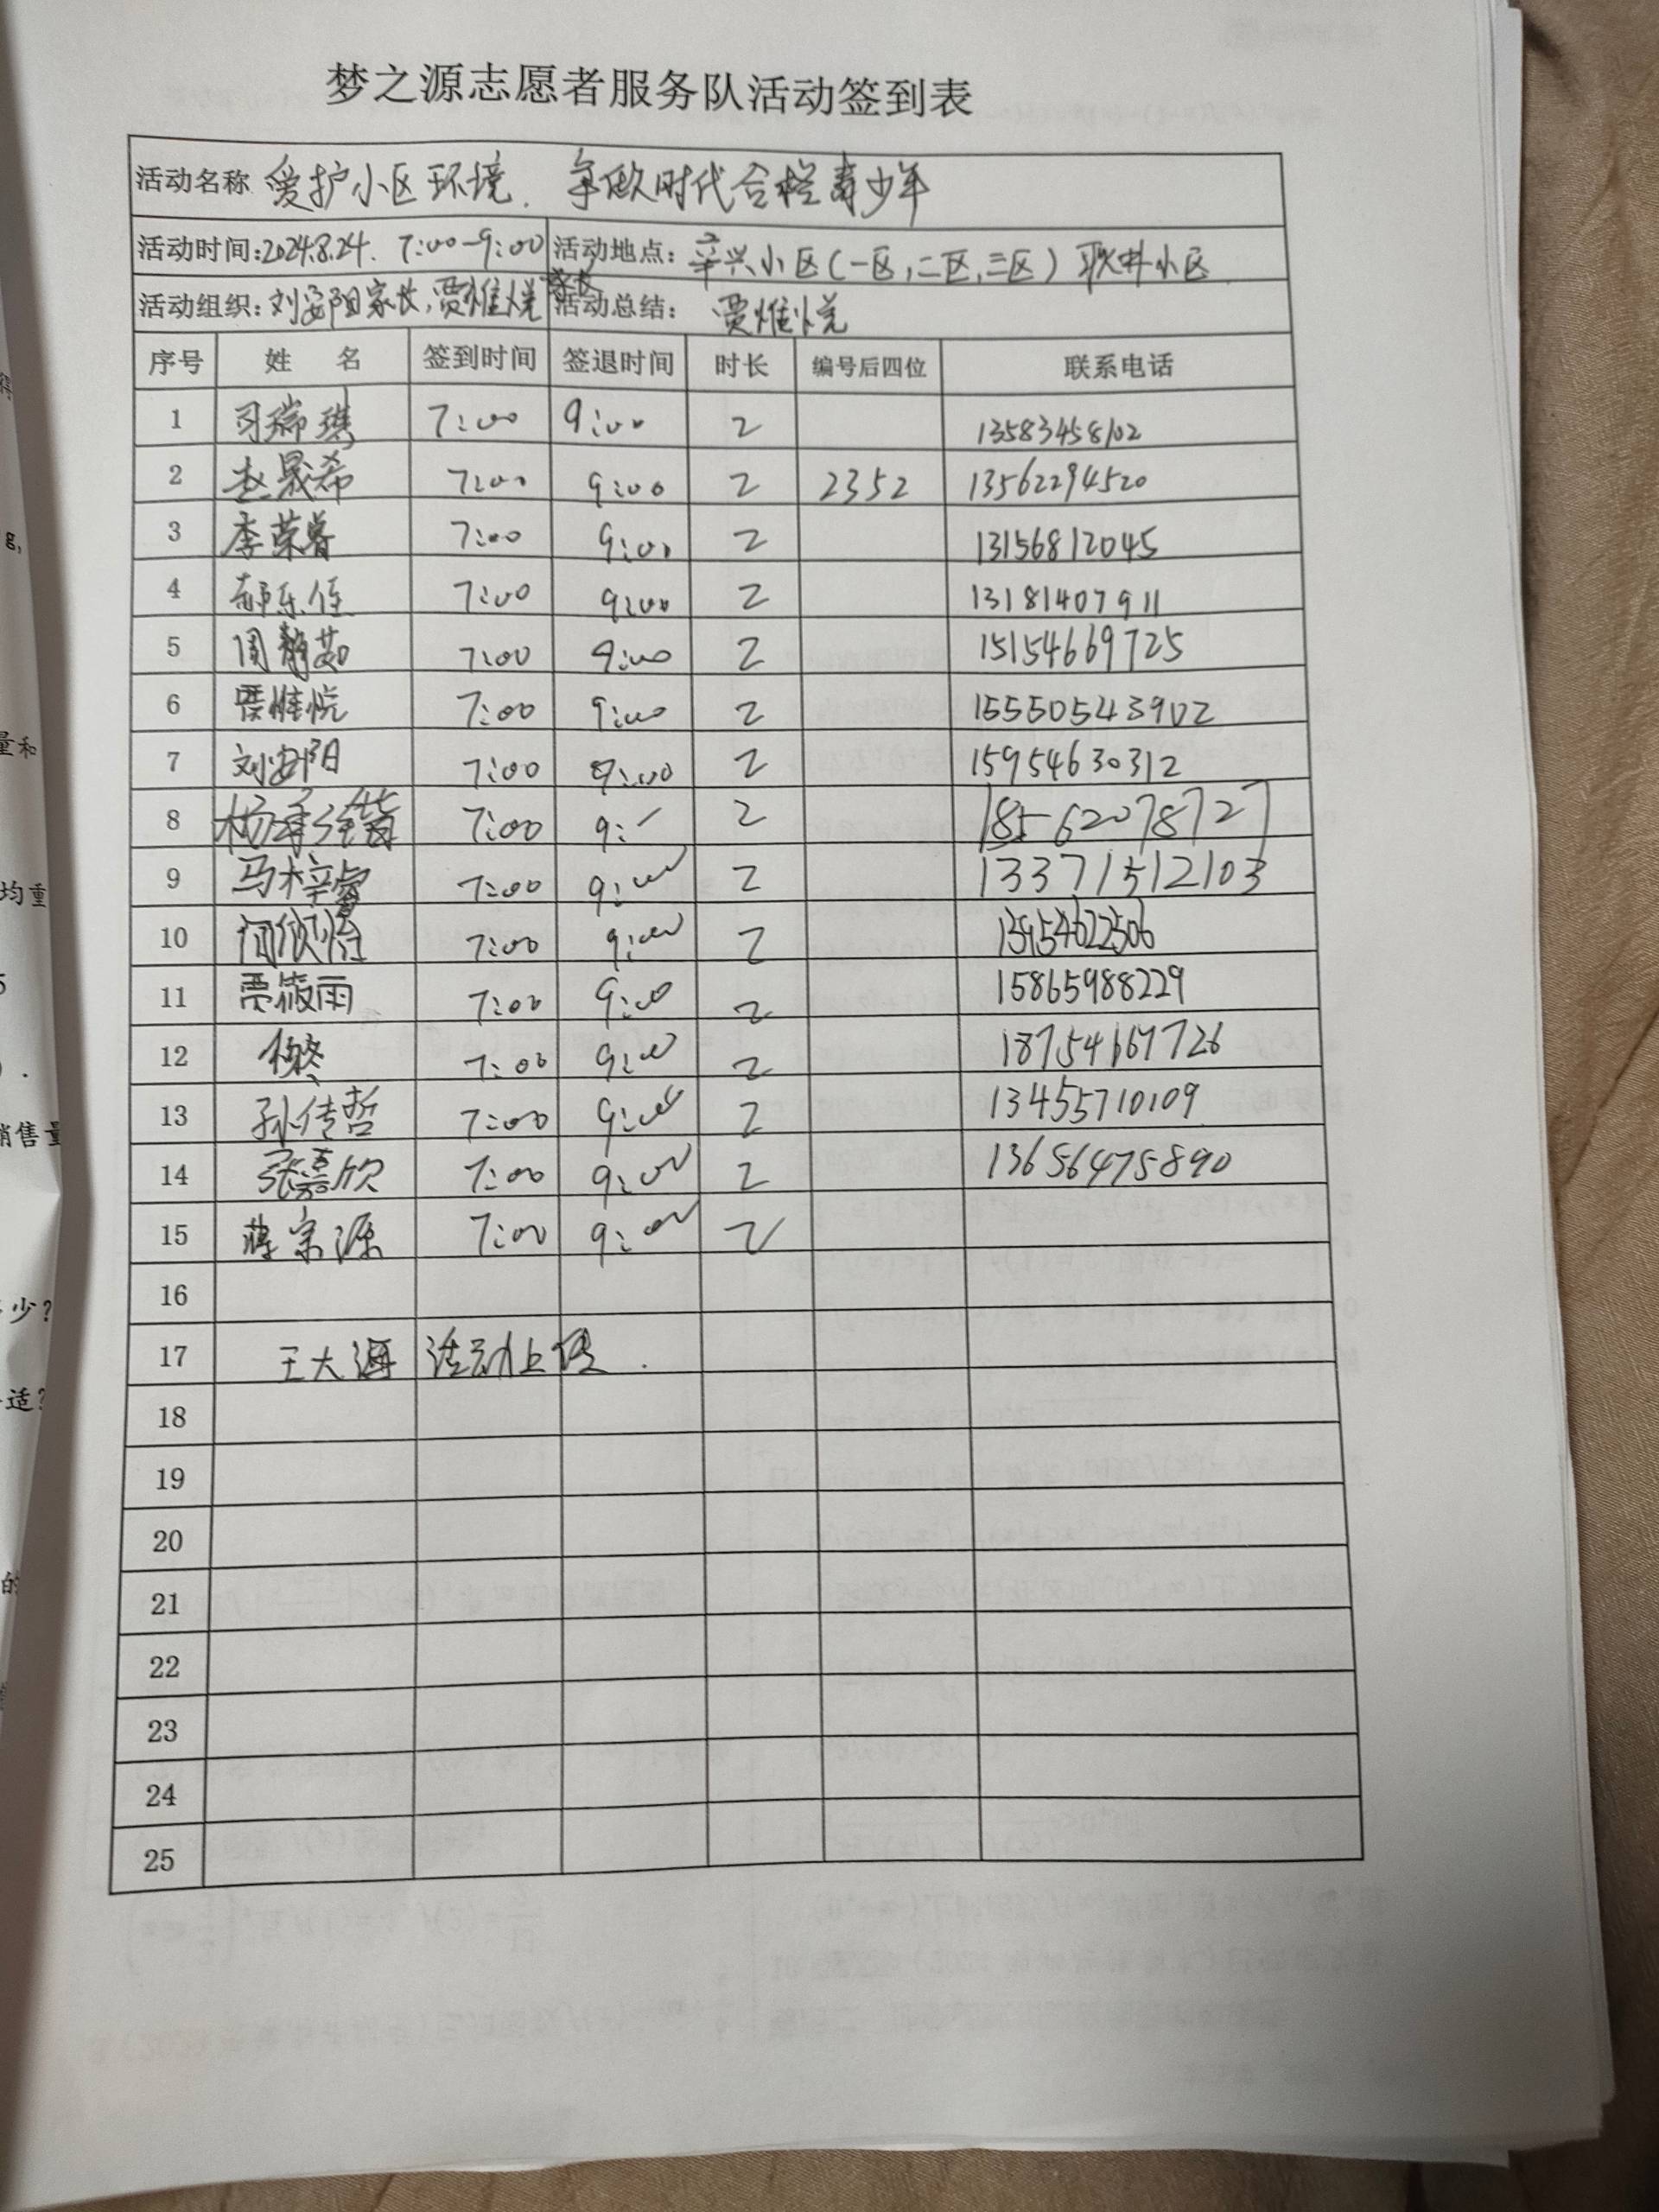 梦之源志愿者服务队活动签到表
活动名称 爱护小区环境. 争做时代合格青少年
活动时间:2024.8.24. 7:00-9:00 活动地点: 辛兴小区(一区,二区,三区) 耿井小区
活动组织: 刘安阳家长,贾惟悦家长 活动总结: 贾惟悦
序号 姓 名 签到时间 签退时间 时长 编号后四位 联系电话
1 司瑞琪 7:00 9:00 2 13583458102
2 赵晟希 7:00 9:00 2 2352 13562294520
3 李荣睿 7:00 9:00 2 13156812045
4 郝乐 7:00 9:00 2 13181407911
5 周静茹 7:00 9:00 2 15154669725
6 贾惟悦 7:00 9:00 2 15550543902
7 刘安阳 7:00 9:00 2 15954630312
8 杨 7:00 9: 2 18562078727
9 马梓睿 7:00 9:00 2 13371512103
10 7:00 9:00 2 13954622506
11 贾筱雨 7:00 9:00 2 15865988229
12 7:00 9:00 2 18754667726
13 孙传哲 7:00 9:00 2 13455710109
14 张嘉欣 7:00 9:00 2 13656475890
15 蒋宗源 7:00 9:00 2
16
17 王大海 活动上传.
18
19
20
21
22
23
24
25